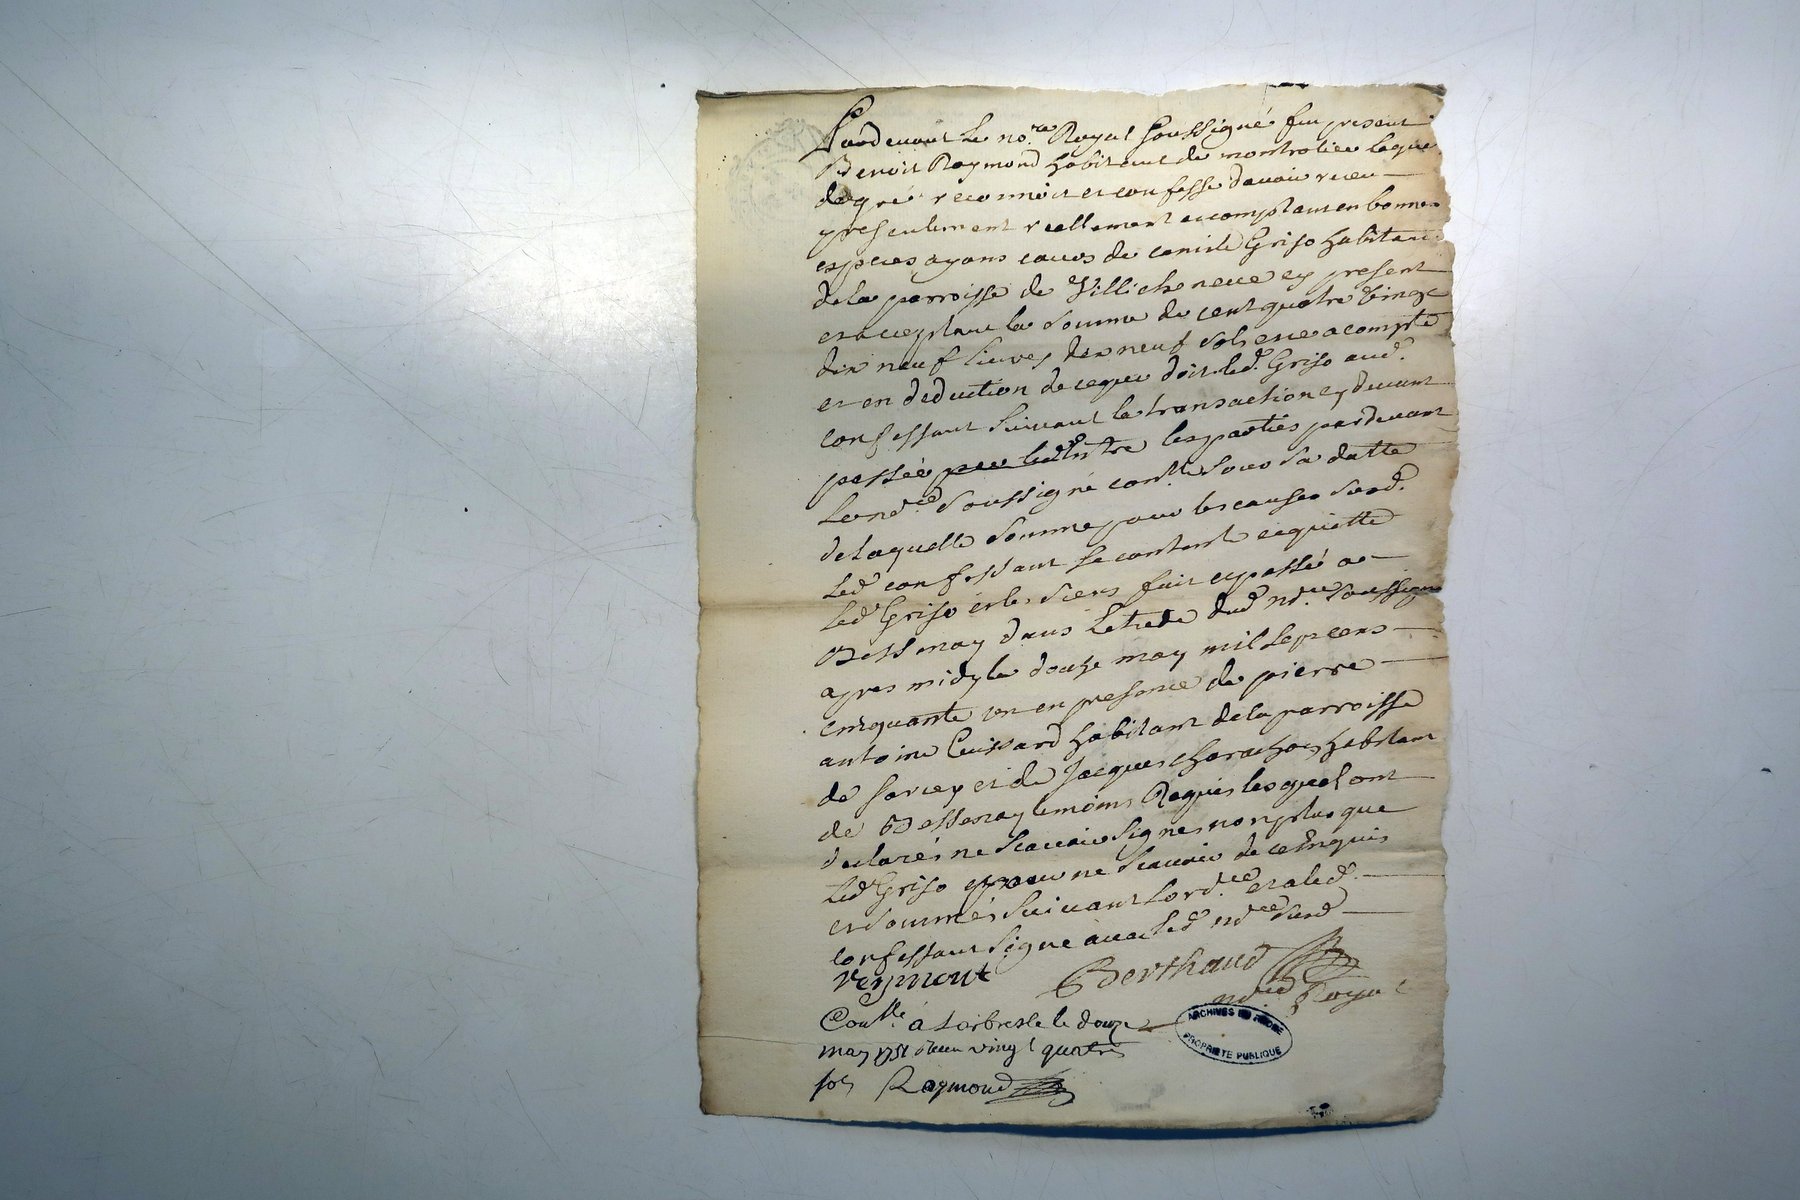 Pardevant le no.re Royal soussigné fut present
Benoit Raymond habitant de montrotier lequel
de gré reconnoit et confesse davoir receu
presentement reellement et comptant en bonnes
especes ayans cours de Griso habitant
de la parroisse de Villecheneve cy present
et acceptant la somme de cent quatre vingt
dix neuf livres dix neuf sols et ce a compte
et en deduction de ce que doit led. Griso aud.
confessant suivant la transaction cy devant
passée entre les parties pardevant
le no.re soussigné con.lle sous sa datte
de laquelle somme pour les causes susd.
led confessant se contente et quitte
led Griso et les siens fait et passé a
Bessenay dans letude dud no.re soussigné
apres midy le douze may mil sept cens
cinquante un en presence de pierre
antoine Cuissard habitant de la parroisse
de sarcey et de Jacques habitant
de Bessenay temoins Requis lesquel ont
declarés ne scavoir signer non plus que
led Griso pour ne scavoir de ce enquis
et sommés suivant lord.ce et a led.
confessant signé avec led no.re susd
reymont Berthaud
no.re Royal
Con.llé à Larbresle le douze
may 1751 Receu vingt quatre
sols Raymond
ARCHIVES DU RHÔNE
PROPRIÉTÉ PUBLIQUE